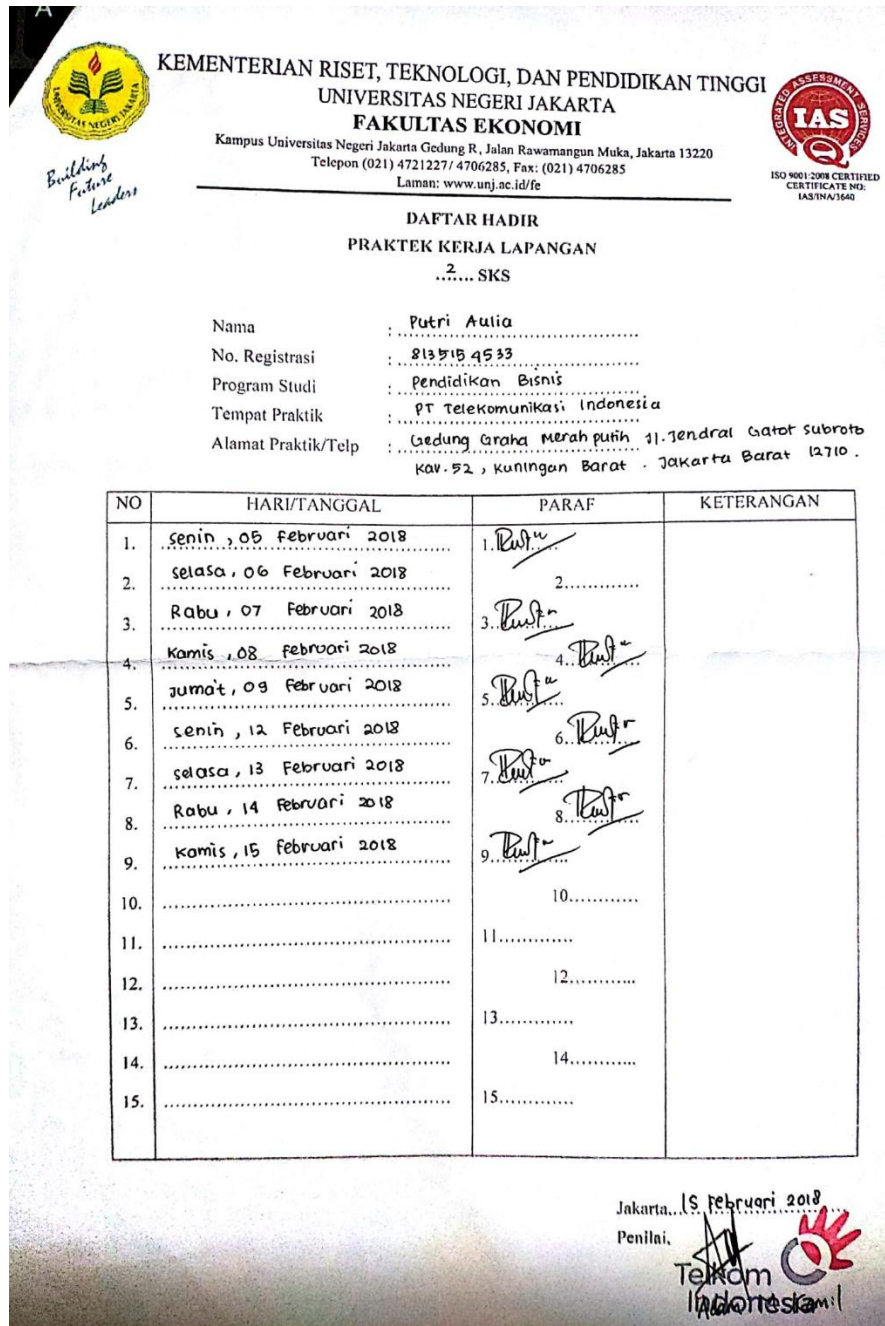 UNIVERSITAS NEGERI JAKARTA
Building
Future
Leaders
KEMENTERIAN RISET, TEKNOLOGI, DAN PENDIDIKAN TINGGI
UNIVERSITAS NEGERI JAKARTA
FAKULTAS EKONOMI
Kampus Universitas Negeri Jakarta Gedung R, Jalan Rawamangun Muka, Jakarta 13220
Telepon (021) 4721227/ 4706285, Fax: (021) 4706285
Laman: www.unj.ac.id/fe
INTEGRATED ASSESSMENT SERVICES
IAS
ISO 9001:2008 CERTIFIED
CERTIFICATE NO:
IAS/INA/3640
DAFTAR HADIR
PRAKTEK KERJA LAPANGAN
..2.... SKS
Nama : Putri Aulia
No. Registrasi : 8135154533
Program Studi : Pendidikan Bisnis
Tempat Praktik : PT Telekomunikasi Indonesia
Alamat Praktik/Telp : Gedung Graha Merah putih Jl. Jendral Gatot Subroto
Kav. 52, Kuningan Barat . Jakarta Barat 12710.
NO HARI/TANGGAL PARAF KETERANGAN
1. Senin, 05 Februari 2018 1.
2. Selasa, 06 Februari 2018 2.............
3. Rabu, 07 Februari 2018 3.
4. Kamis, 08 Februari 2018 4.
5. Jumat, 09 Februari 2018 5.
6. Senin, 12 Februari 2018 6.
7. Selasa, 13 Februari 2018 7.
8. Rabu, 14 Februari 2018 8.
9. Kamis, 15 Februari 2018 9.
10. 10............
11. 11.............
12. 12............
13. 13.............
14. 14............
15. 15.............
Jakarta, 15 Februari 2018
Penilai,
Telkom
Indonesia